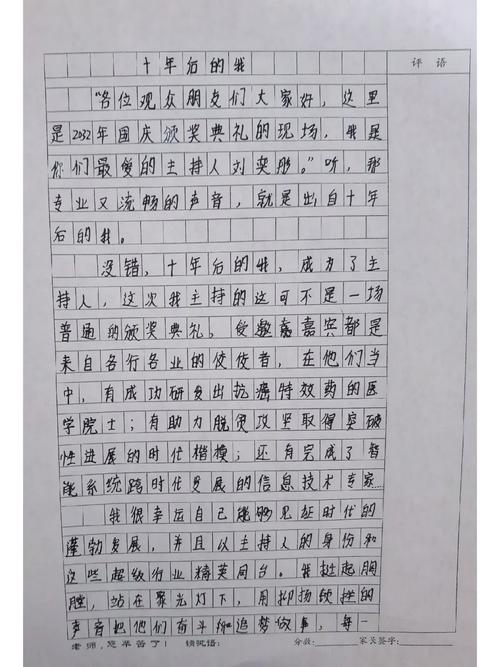 十年后的我
评语
“各位观众朋友们大家好，这里
是2032年国庆颁奖典礼的现场，我是
你们最爱的主持人刘奕彤。”听，那
专业又流畅的声音，就是出自十年
后的我。
没错，十年后的我，成为了主
持人，这次我主持的这可不是一场
普通的颁奖典礼。受邀嘉宾都是
来自各行各业的佼佼者，在他们当
中，有成功研发出抗癌特效药的医
学院士；有助力脱贫攻坚取得突破
性进展的时代楷模；还有完成了智
能系统跨时代发展的信息技术专家…
我很幸运自己能够见证时代的
蓬勃发展，并且以主持人的身份和
这些超级行业精英同台。我挺起胸
膛，站在聚光灯下，用抑扬顿挫的
声音把他们奋斗和追梦故事，每一
老师，您辛苦了！ 请批语： 分数： 家长签字：